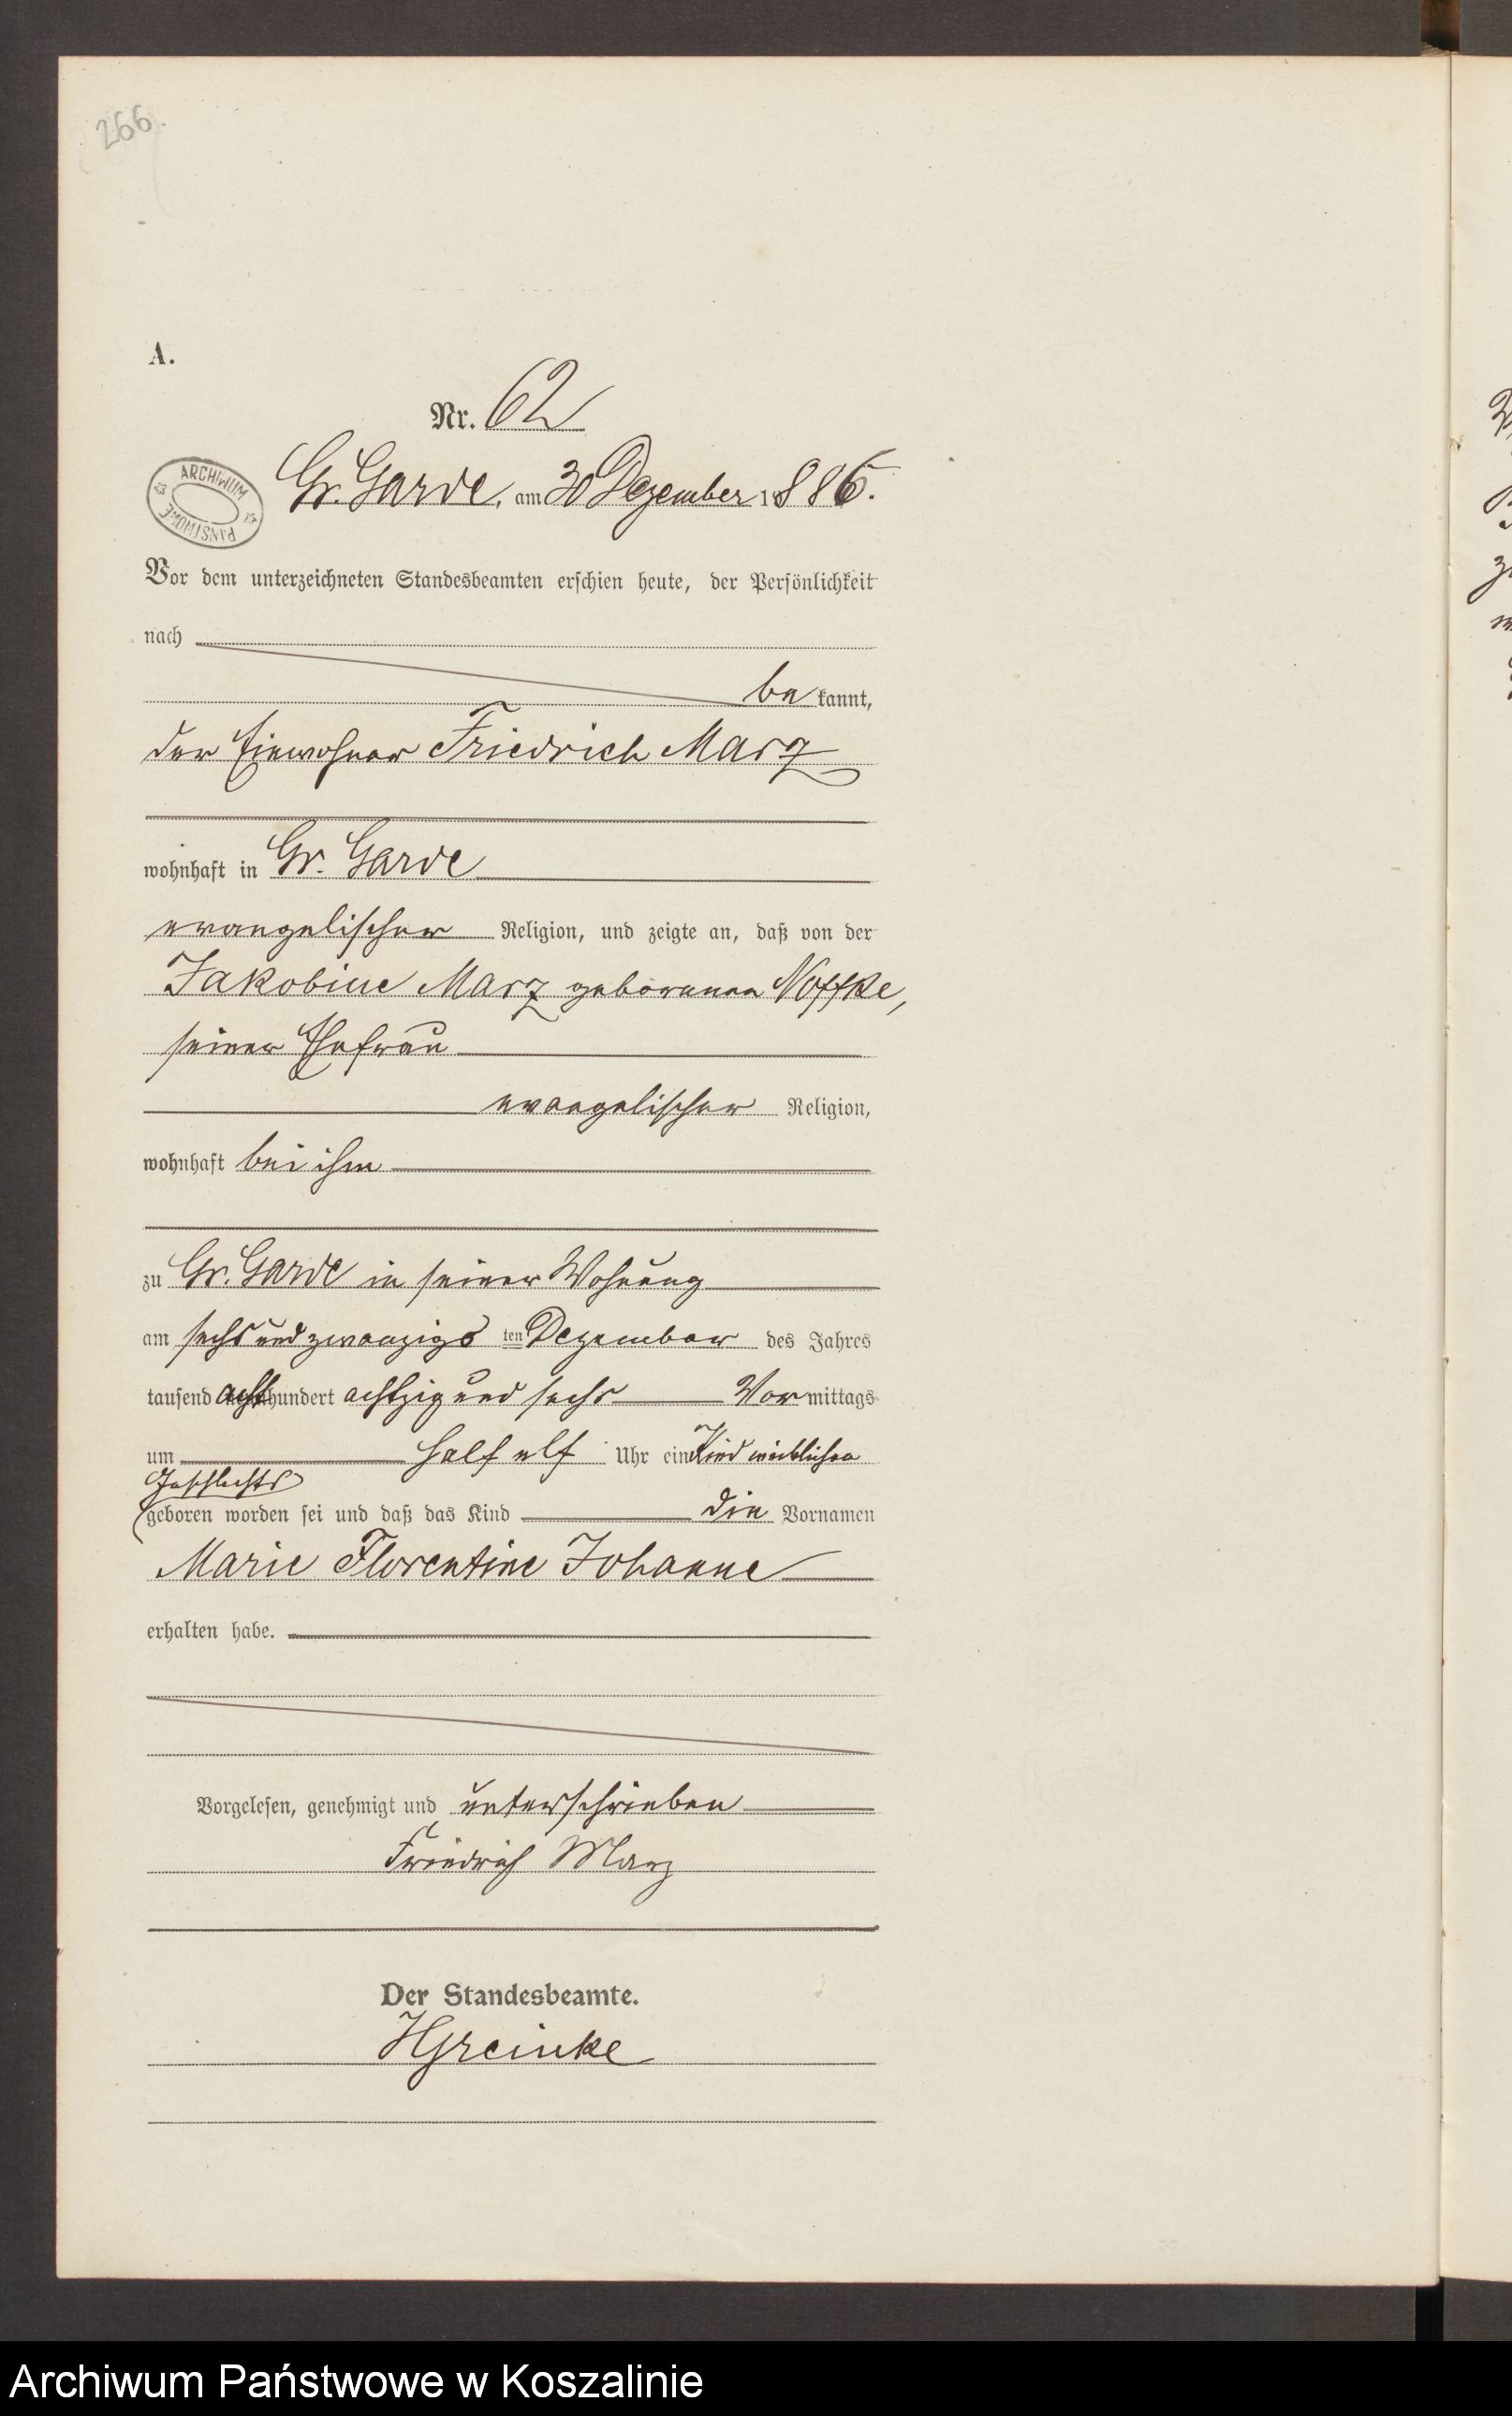 266.
A.
Nr. 62
ARCHIWUM
PAŃSTWOWE
Gr. Garde, am 30 Dezember 1886.
Vor dem unterzeichneten Standesbeamten erschien heute, der Persönlichkeit
nach
be kannt,
der Einwohner Friedrich Marz
wohnhaft in Gr. Garde
evangelischer Religion, und zeigte an, daß von der
Jakobine Marz geborenen Noffke,
seiner Ehefrau
evangelischer Religion,
wohnhaft bei ihm
zu Gr. Garde in seiner Wohnung
am sechsundzwanzigs ten Dezember des Jahres
tausend acht hundert achtzig und sechs Vor mittags
um half elf Uhr ein Kind weiblichen
Geschlechts
geboren worden sei und daß das Kind die Vornamen
Marie Florentine Johanne
erhalten habe.
Vorgelesen, genehmigt und unterschrieben
Friedrich Marz
Der Standesbeamte.
Archiwum Państwowe w Koszalinie